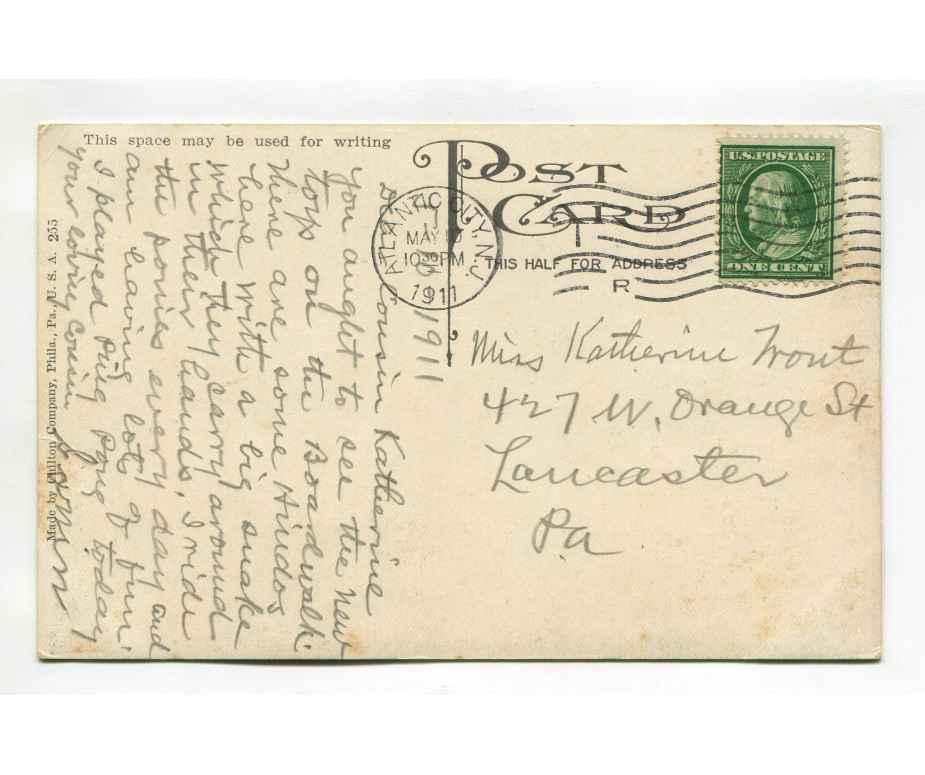 This space may be used for writing
POST CARD
THIS HALF FOR ADDRESS
U.S. POSTAGE
ONE CENT
ATLANTIC CITY, N.J.
MAY
10 30 PM
1911
R
Made by Chilton Company, Phila., Pa., U. S. A. 255
1911
Dear Cousin Katherine
you aught to see the new
toys on the Boardwalk.
There are some Hindos
here with a big snake
which they carry around
in their hands. I ride
the ponies every day and
am having lots of fun.
I played Ping Pong today
your loving cousin
Miss Katherine Trout
427 W. Orange St
Lancaster
Pa